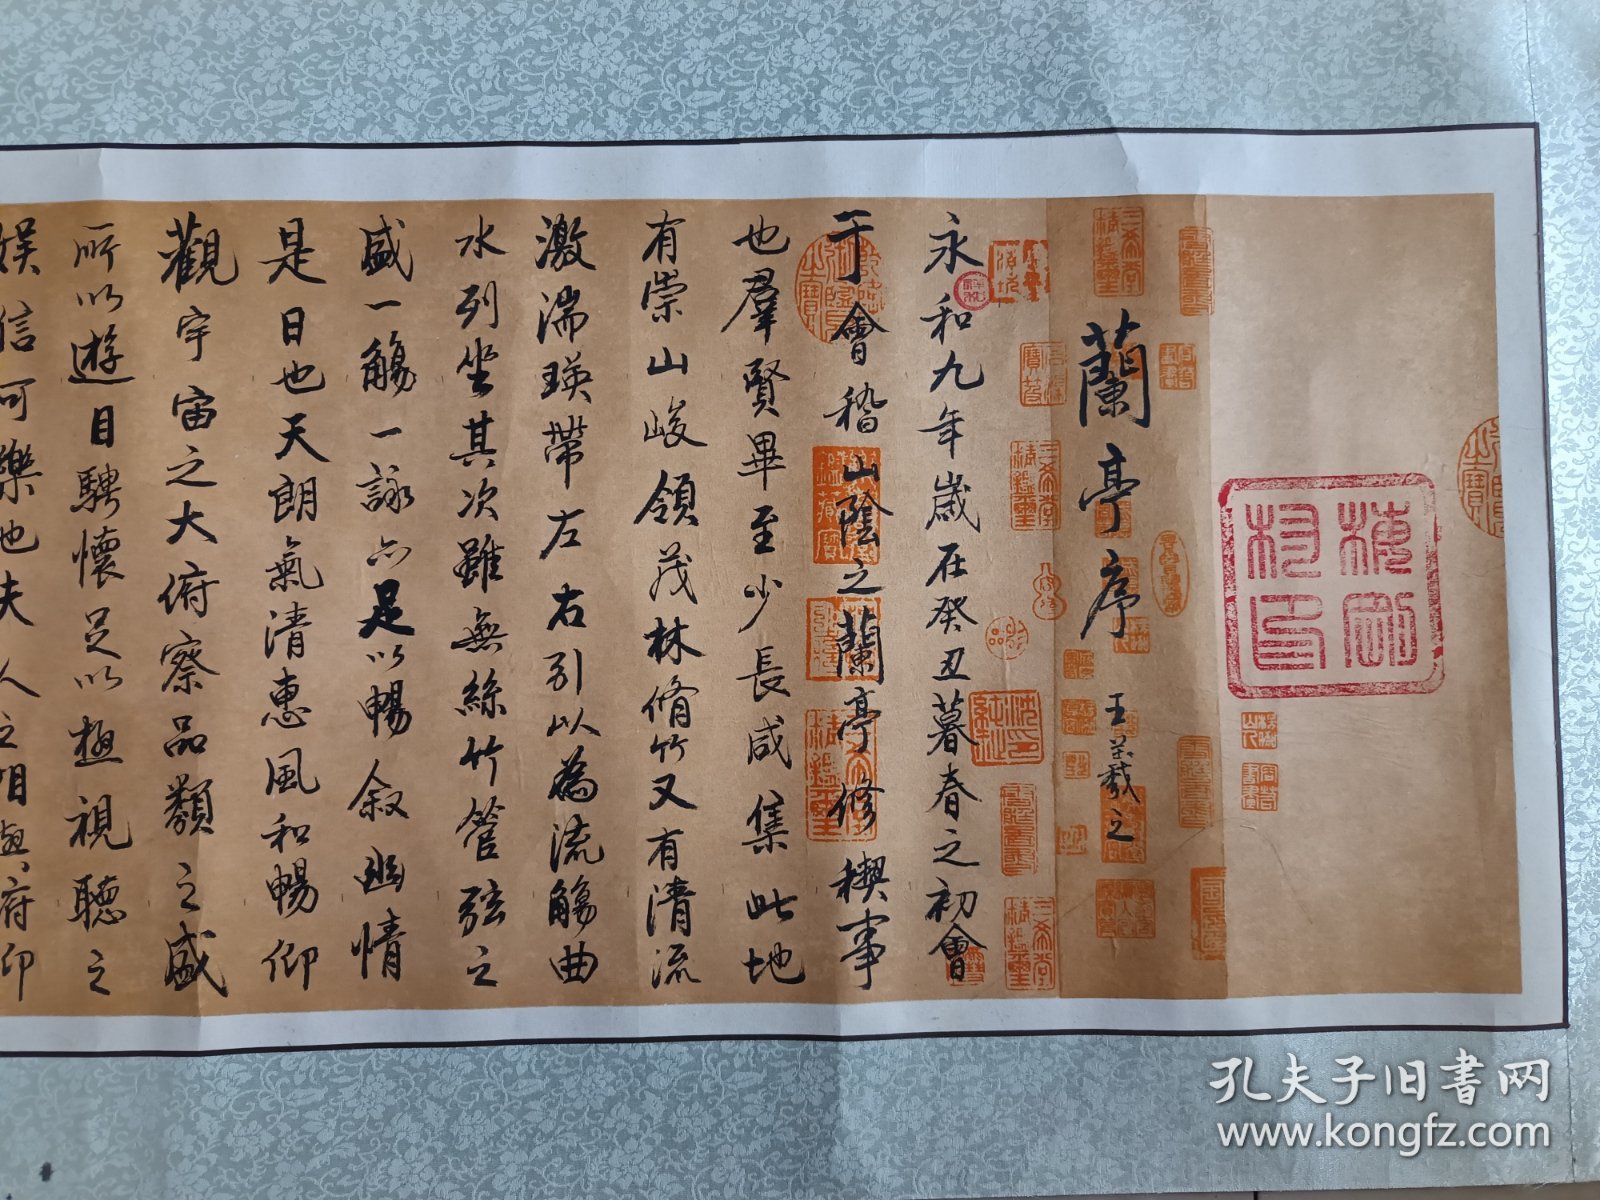 蘭亭序
王羲之
永和九年歲在癸丑暮春之初會
于會稽山陰之蘭亭修禊事
也羣賢畢至少長咸集此地
有崇山峻領茂林脩竹又有清流
激湍瑛帶左右引以為流觴曲
水列坐其次雖無絲竹管弦之
盛一觴一詠亦足以暢叙幽情
是日也天朗氣清惠風和暢仰
觀宇宙之大俯察品類之盛
所以遊目騁懷足以極視聽之
娛信可樂也夫人之相與俯仰
孔夫子旧书网
www.kongfz.com